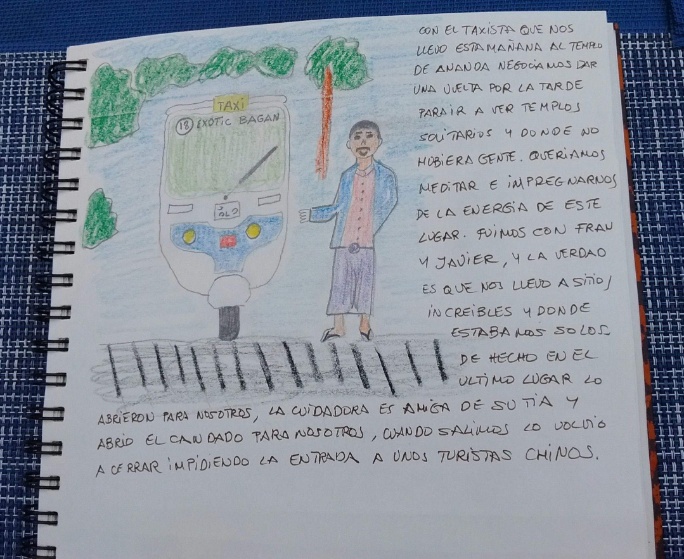 TAXI
18 EXOTIC BAGAN
CON EL TAXISTA QUE NOS
LLEVO ESTA MAÑANA AL TEMPLO
DE ANANDA NEGOCIAMOS DAR
UNA VUELTA POR LA TARDE
PARA IR A VER TEMPLOS
SOLITARIOS Y DONDE NO
HUBIERA GENTE. QUERIAMOS
MEDITAR E IMPREGNARNOS
DE LA ENERGIA DE ESTE
LUGAR. FUIMOS CON FRAN
Y JAVIER, Y LA VERDAD
ES QUE NOS LLEVO A SITIOS
INCREIBLES Y DONDE
ESTABAMOS SOLOS.
DE HECHO EN EL
ULTIMO LUGAR LO
ABRIERON PARA NOSOTROS, LA CUIDADORA ES AMIGA DE SU TIA Y
ABRIO EL CANDADO PARA NOSOTROS, CUANDO SALIMOS LO VOLVIO
A CERRAR IMPIDIENDO LA ENTRADA A UNOS TURISTAS CHINOS.